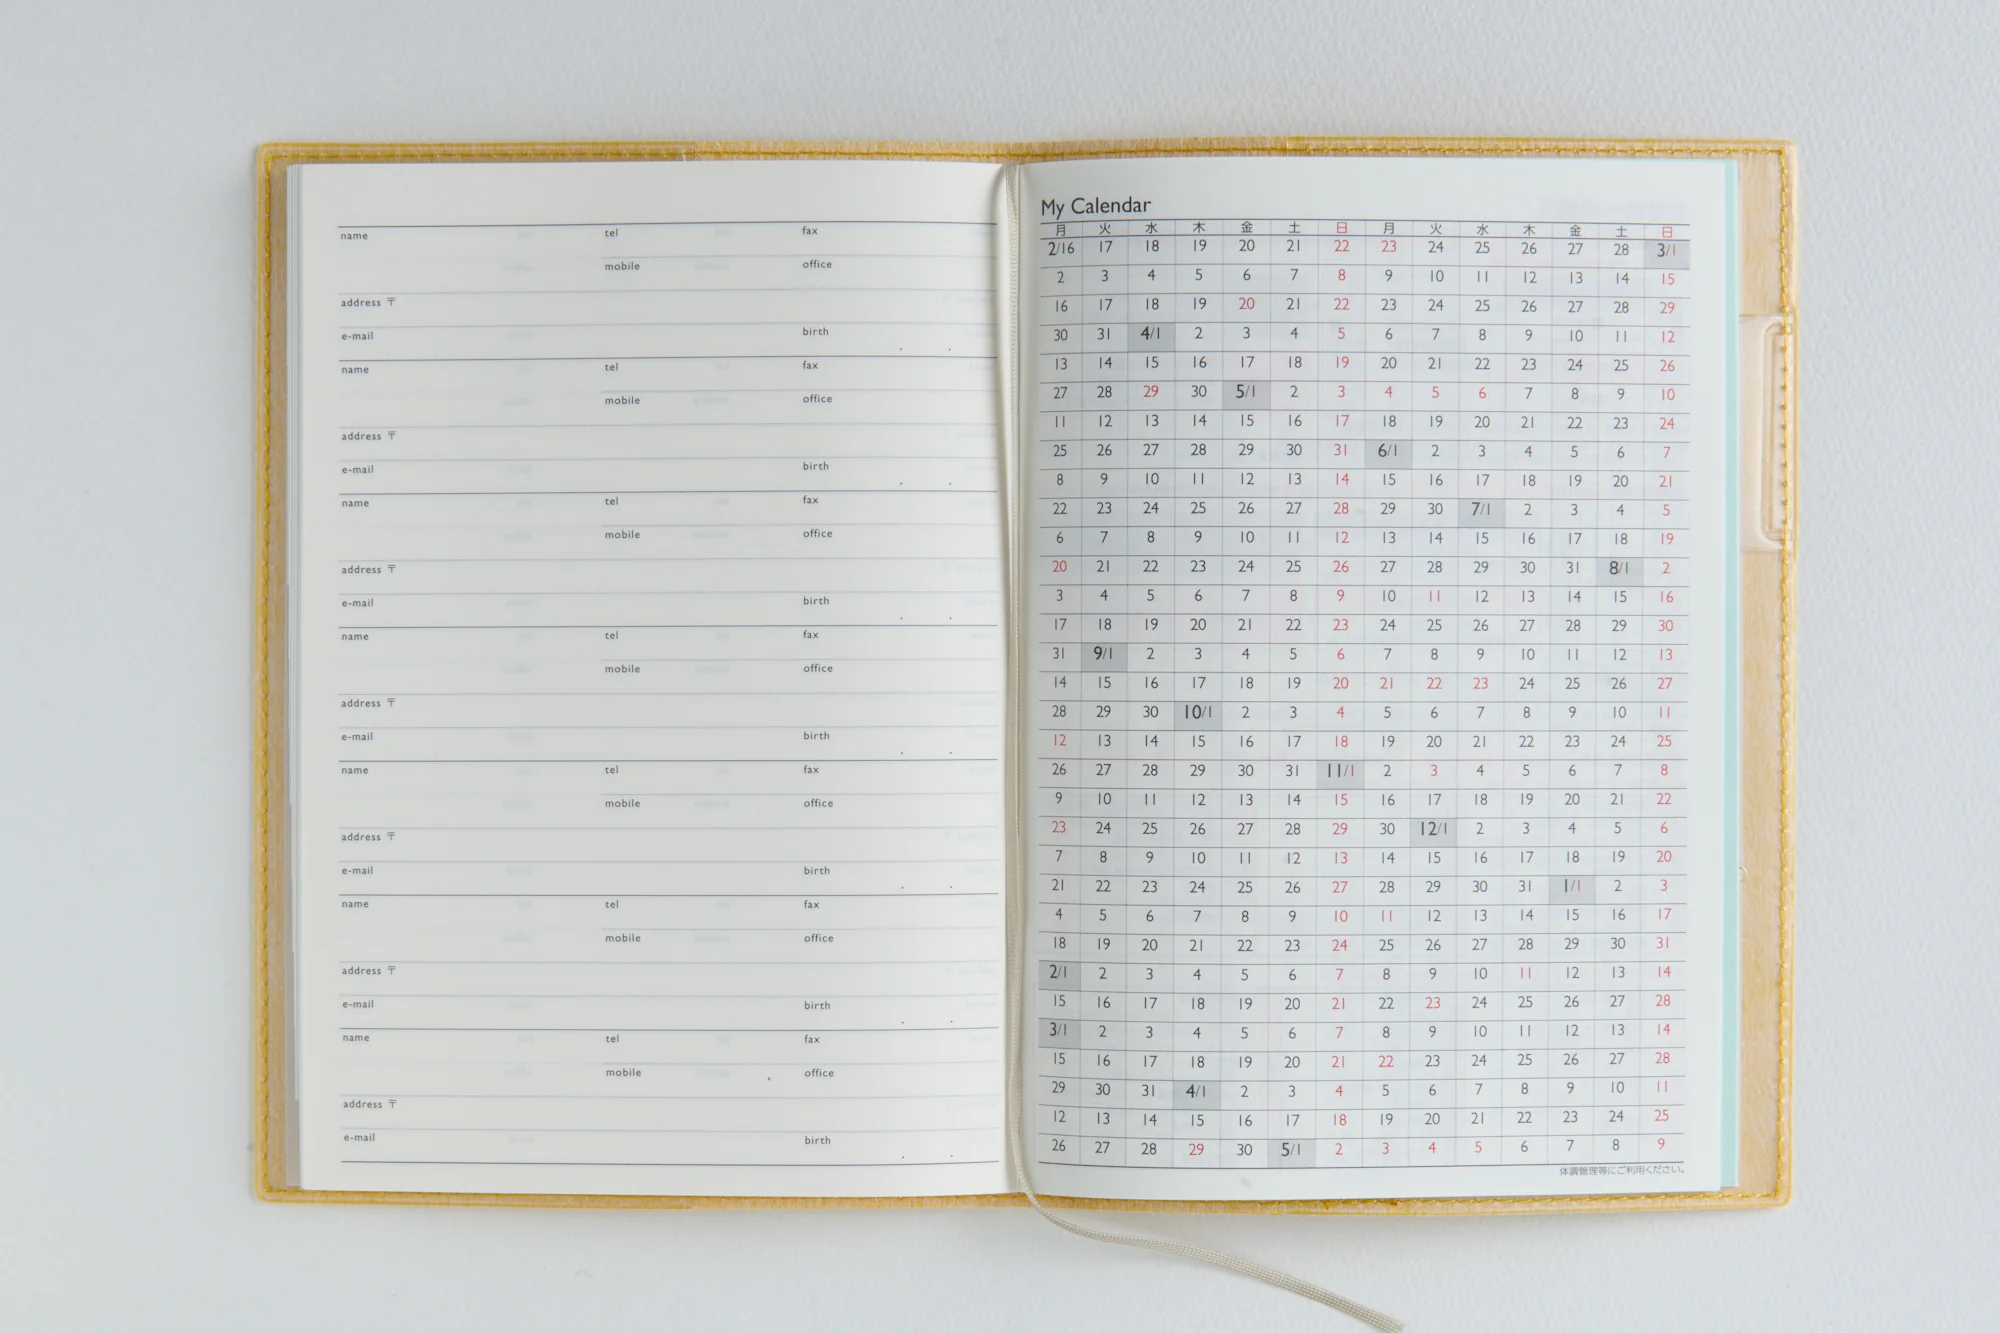 name tel fax
mobile office
address 〒
e-mail birth . .
name tel fax
mobile office
address 〒
e-mail birth . .
name tel fax
mobile office
address 〒
e-mail birth . .
name tel fax
mobile office
address 〒
e-mail birth . .
name tel fax
mobile office
address 〒
e-mail birth . .
name tel fax
mobile office
address 〒
e-mail birth . .
name tel fax
mobile office
address 〒
e-mail birth . .
My Calendar
月 火 水 木 金 土 日 月 火 水 木 金 土 日
2/16 17 18 19 20 21 22 23 24 25 26 27 28 3/1
2 3 4 5 6 7 8 9 10 11 12 13 14 15
16 17 18 19 20 21 22 23 24 25 26 27 28 29
30 31 4/1 2 3 4 5 6 7 8 9 10 11 12
13 14 15 16 17 18 19 20 21 22 23 24 25 26
27 28 29 30 5/1 2 3 4 5 6 7 8 9 10
11 12 13 14 15 16 17 18 19 20 21 22 23 24
25 26 27 28 29 30 31 6/1 2 3 4 5 6 7
8 9 10 11 12 13 14 15 16 17 18 19 20 21
22 23 24 25 26 27 28 29 30 7/1 2 3 4 5
6 7 8 9 10 11 12 13 14 15 16 17 18 19
20 21 22 23 24 25 26 27 28 29 30 31 8/1 2
3 4 5 6 7 8 9 10 11 12 13 14 15 16
17 18 19 20 21 22 23 24 25 26 27 28 29 30
31 9/1 2 3 4 5 6 7 8 9 10 11 12 13
14 15 16 17 18 19 20 21 22 23 24 25 26 27
28 29 30 10/1 2 3 4 5 6 7 8 9 10 11
12 13 14 15 16 17 18 19 20 21 22 23 24 25
26 27 28 29 30 31 11/1 2 3 4 5 6 7 8
9 10 11 12 13 14 15 16 17 18 19 20 21 22
23 24 25 26 27 28 29 30 12/1 2 3 4 5 6
7 8 9 10 11 12 13 14 15 16 17 18 19 20
21 22 23 24 25 26 27 28 29 30 31 1/1 2 3
4 5 6 7 8 9 10 11 12 13 14 15 16 17
18 19 20 21 22 23 24 25 26 27 28 29 30 31
2/1 2 3 4 5 6 7 8 9 10 11 12 13 14
15 16 17 18 19 20 21 22 23 24 25 26 27 28
3/1 2 3 4 5 6 7 8 9 10 11 12 13 14
15 16 17 18 19 20 21 22 23 24 25 26 27 28
29 30 31 4/1 2 3 4 5 6 7 8 9 10 11
12 13 14 15 16 17 18 19 20 21 22 23 24 25
26 27 28 29 30 5/1 2 3 4 5 6 7 8 9
体調管理等にご利用ください。